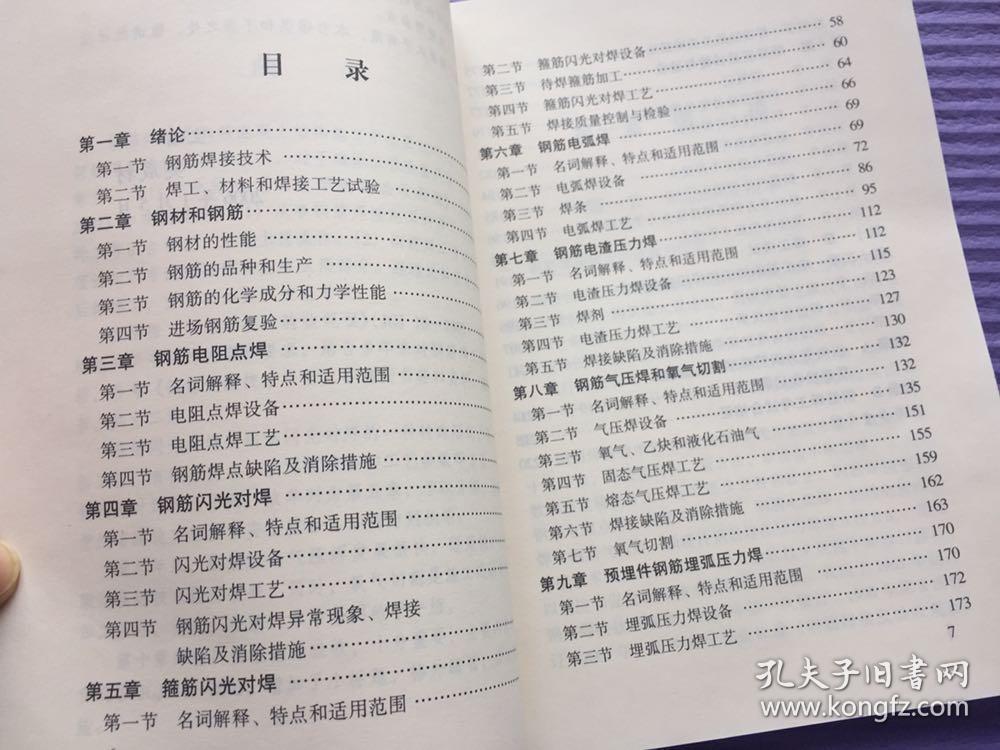 目 录
第一章 绪论
第一节 钢筋焊接技术
第二节 焊工、材料和焊接工艺试验
第二章 钢材和钢筋
第一节 钢材的性能
第二节 钢筋的品种和生产
第三节 钢筋的化学成分和力学性能
第四节 进场钢筋复验
第三章 钢筋电阻点焊
第一节 名词解释、特点和适用范围
第二节 电阻点焊设备
第三节 电阻点焊工艺
第四节 钢筋焊点缺陷及消除措施
第四章 钢筋闪光对焊
第一节 名词解释、特点和适用范围
第二节 闪光对焊设备
第三节 闪光对焊工艺
第四节 钢筋闪光对焊异常现象、焊接
缺陷及消除措施
第五章 箍筋闪光对焊
第一节 名词解释、特点和适用范围
第二节 箍筋闪光对焊设备 58
第三节 待焊箍筋加工 60
第四节 箍筋闪光对焊工艺 64
第五节 焊接质量控制与检验 66
第六章 钢筋电弧焊 69
第一节 名词解释、特点和适用范围 69
第二节 电弧焊设备 72
第三节 焊条 86
第四节 电弧焊工艺 95
第七章 钢筋电渣压力焊 112
第一节 名词解释、特点和适用范围 112
第二节 电渣压力焊设备 115
第三节 焊剂 123
第四节 电渣压力焊工艺 127
第五节 焊接缺陷及消除措施 130
第八章 钢筋气压焊和氧气切割 132
第一节 名词解释、特点和适用范围 132
第二节 气压焊设备 135
第三节 氧气、乙炔和液化石油气 151
第四节 固态气压焊工艺 155
第五节 熔态气压焊工艺 159
第六节 焊接缺陷及消除措施 162
第七节 氧气切割 163
第九章 预埋件钢筋埋弧压力焊 170
第一节 名词解释、特点和适用范围 170
第二节 埋弧压力焊设备 172
第三节 埋弧压力焊工艺 173
7
孔夫子旧书网
www.kongfz.com